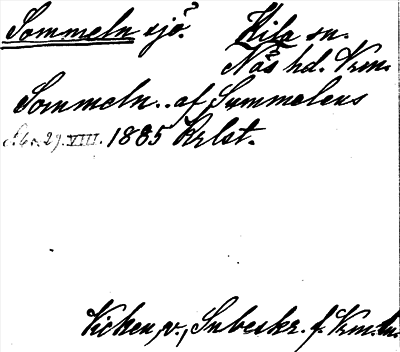 Sommeln sjö? Kila sn.
Näs hd. Vrm.
Sommeln.. af Summelens
29. VIII. 1885 Krlst.
Vicken, v., Snbeskr. f. Vrm. ln.